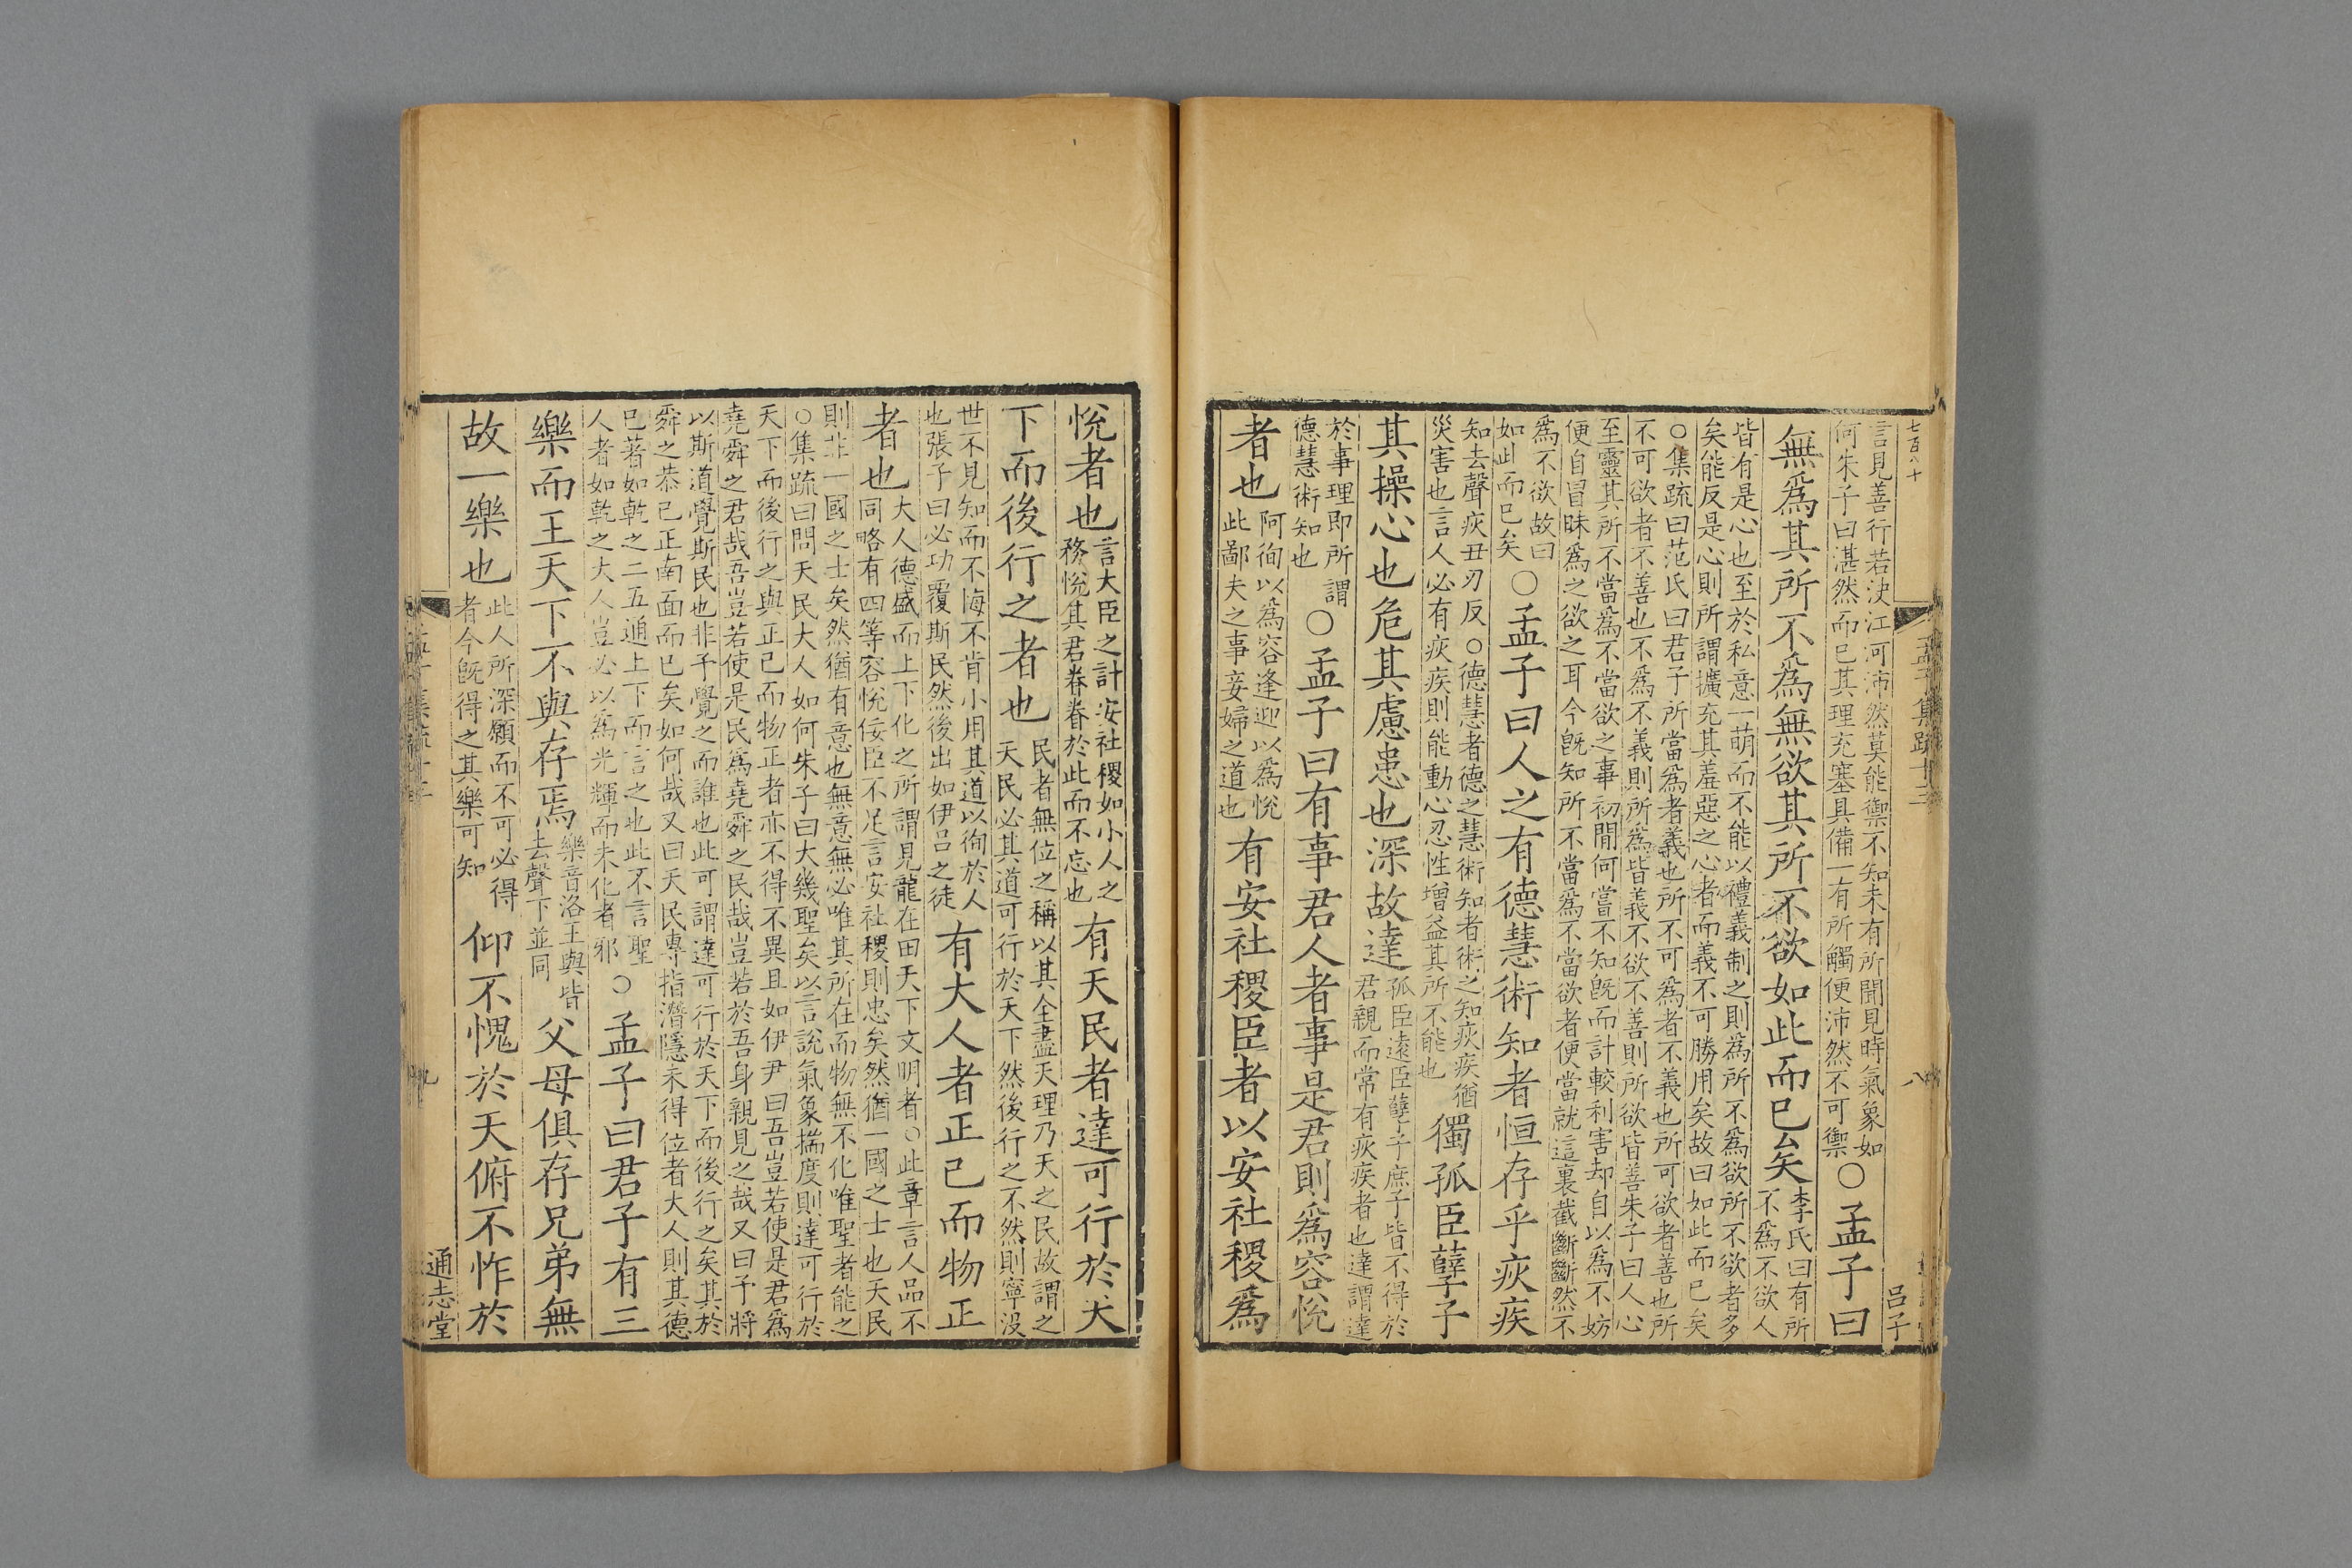 七百八十
孟子集疏十三
八
呂子
言見善行若決江河沛然莫能禦不知未有所聞見時氣象如
何朱子曰湛然而已其理充塞具備一有所觸便沛然不可禦
○孟子曰
無爲其所不爲無欲其所不欲如此而已矣
李氏曰有所
不爲不欲人
皆有是心也至於私意一萌而不能以禮義制之則爲所不爲欲所不欲者多
矣能反是心則所謂擴充其羞惡之心者而義不可勝用矣故曰如此而已矣
○集疏曰范氏曰君子所當爲者義也所不可爲者不義也所可欲者善也所
不可欲者不善也不爲不義則所爲皆義不欲不善則所欲皆善朱子曰人心
至靈其所不當爲不當欲之事初間何嘗不知旣而計較利害却自以爲不妨
便自冒昧爲之欲之耳今旣知所不當爲不當欲者便當就這裏截斷斷然不
爲不欲故曰
如此而已矣
○孟子曰人之有德慧術知者恒存乎疢疾
知去聲疢丑刃反○德慧者德之慧術知者術之知疢疾猶
災害也言人必有疢疾則能動心忍性增益其所不能也
獨孤臣孽子
其操心也危其慮患也深故達
孤臣遠臣孽子庶子皆不得於
君親而常有疢疾者也達謂達
於事理即所謂
德慧術知也
○孟子曰有事君人者事是君則爲容悅
者也
阿徇以爲容逢迎以爲悅
此鄙夫之事妾婦之道也
有安社稷臣者以安社稷爲
悅者也
言大臣之計安社稷如小人之
務悅其君眷眷於此而不忘也
有天民者達可行於天
下而後行之者也
民者無位之稱以其全盡天理乃天之民故謂之
天民必其道可行於天下然後行之不然則寧沒
世不見知而不悔不肯小用其道以徇於人
也張子曰必功覆斯民然後出如伊呂之徒
有大人者正己而物正
者也
大人德盛而上下化之所謂見龍在田天下文明者○此章言人品不
同略有四等容悅佞臣不足言安社稷則忠矣然猶一國之士也天民
則非一國之士矣然猶有意也無意無必唯其所在而物無不化唯聖者能之
○集疏曰問天民大人如何朱子曰大幾聖矣以言說氣象揣度則達可行於
天下而後行之與正己而物正者亦不得不異且如伊尹曰吾豈若使是君爲
堯舜之君哉吾豈若使是民爲堯舜之民哉豈若於吾身親見之哉又曰予將
以斯道覺斯民也非予覺之而誰也此可謂達可行於天下而後行之矣其於
舜之恭己正南面而已矣如何哉又曰天民專指潛隱未得位者大人則其德
已著如乾之二五通上下而言之也此不言聖
人者如乾之大人豈必以爲光輝而未化者邪
○孟子曰君子有三
樂而王天下不與存焉
樂音洛王與皆
去聲下並同
父母俱存兄弟無
故一樂也
此人所深願而不可必得
者今旣得之其樂可知
仰不愧於天俯不怍於
孟子集疏十三
九
通志堂